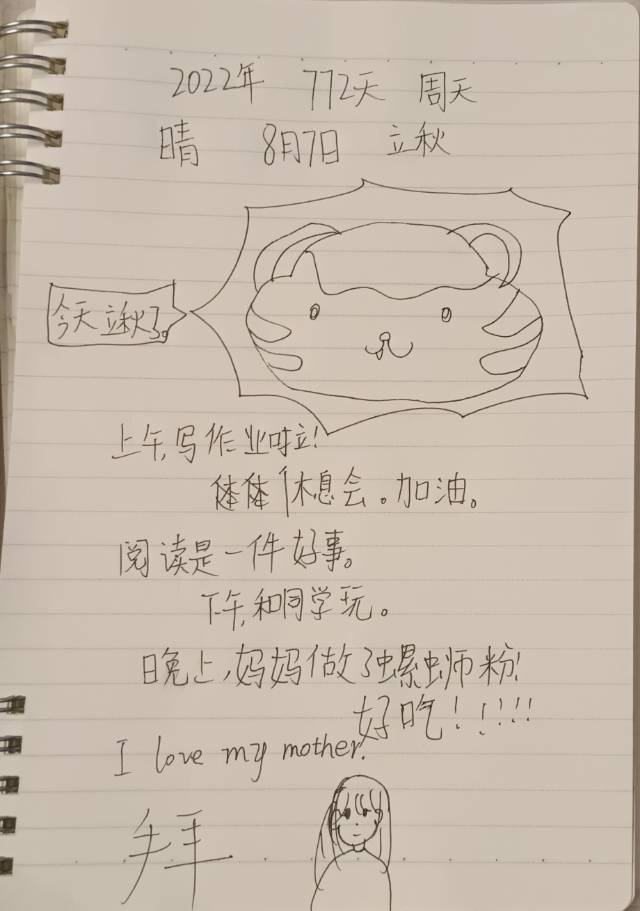 2022年 772天 周天
晴 8月7日 立秋
今天立秋了。
上午,写作业啦!
体体休息会。加油。
阅读是一件好事。
下午,和同学玩。
晚上,妈妈做了螺蛳粉!
好吃!!!!!
I love my mother.
拜